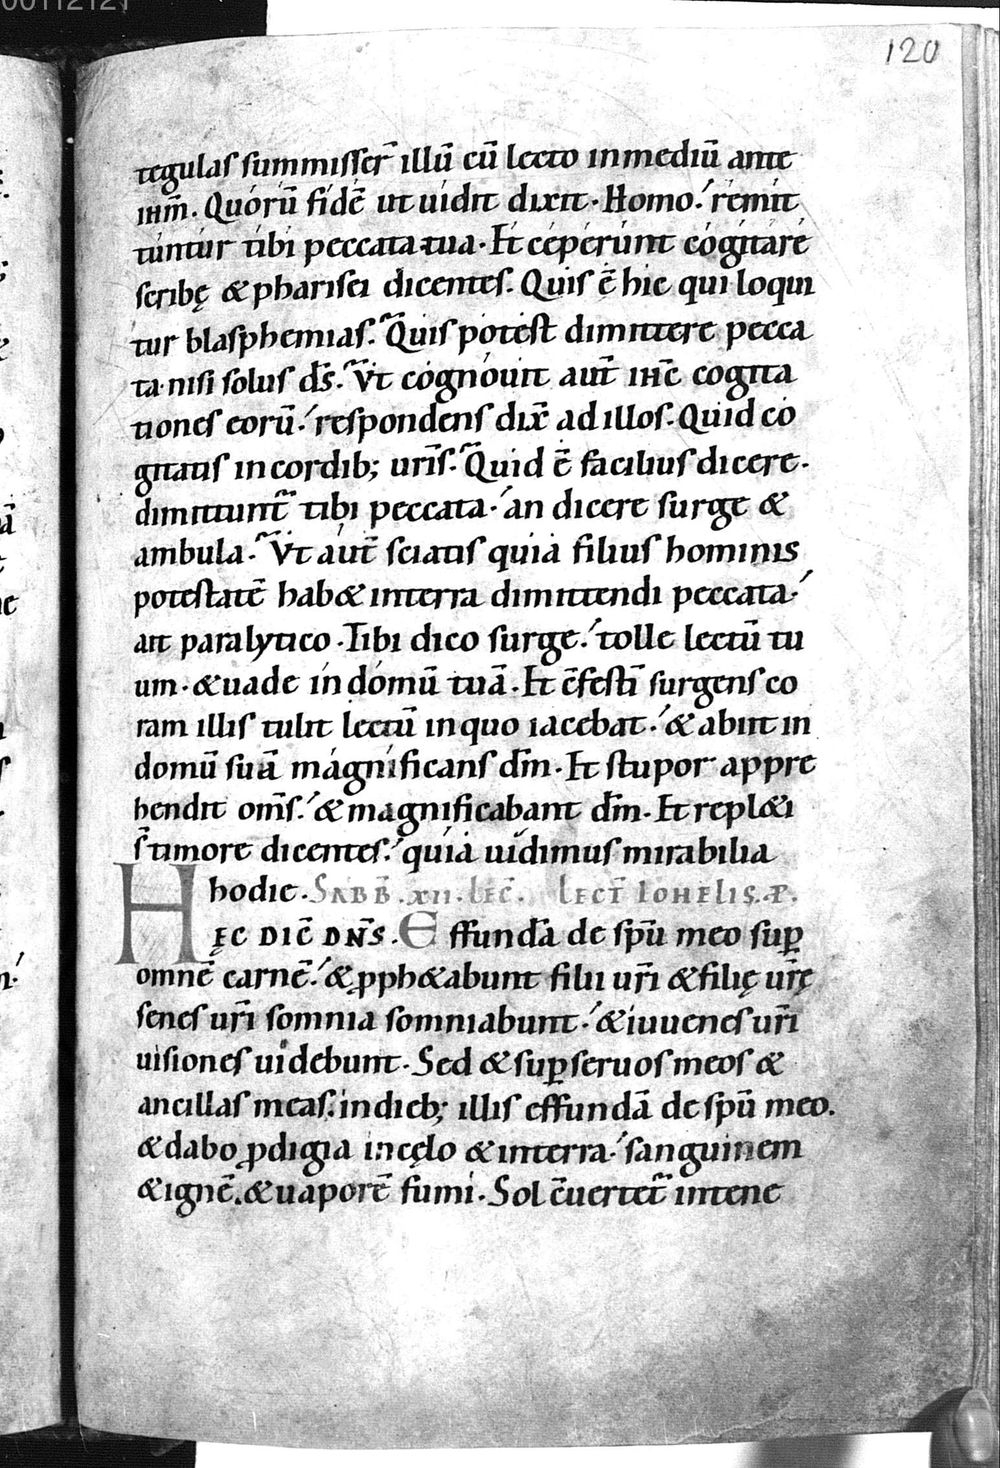 00112121
120
tegulas summisser̄ illū cū lecto inmediū ante
ihm̄. Quorū fidē ut uidit dixit. Homo remit
tuntur tibi peccata tua. Et ceperunt cogitare
scribę & pharisei dicentes. Quis ē hic qui loqui
tur blasphemias. Quis potest dimittere pecca
ta nisi solus ds̄. Vt cognouit aut̄ ihc̄ cogita
tiones eorū. respondens dix̄ ad illos. Quid co
gitatis in cordib; uris̄. Quid ē facilius dicere.
dimittunt̄ tibi peccata. an dicere surge &
ambula. Vt aut̄ sciatis quia filius hominis
potestatē hab& interra dimittendi peccata.
ait paralytico. Tibi dico surge. tolle lectū tu
um. & uade in domū tuā. Et c̄festī surgens co
ram illis tulit lectū in quo iacebat. & abiit in
domū suā magnificans dm̄. Et stupor appre
hendit oms̄. & magnificabant dm̄. Et repl&i
s̄ timore dicentes. quia uidimus mirabilia
hodie. SABB̄. XII. LEC̄. LECT̄ IOHELIS. P̄.
HĘC DIC̄ DN̄S. Effundā de spū meo suꝑ
omnē carnē. & ꝓph&abunt filii urī & filię urę̄
senes urī somnia somniabunt. & iuuenes urī
uisiones uidebunt. Sed & suꝑ seruos meos &
ancillas meas. in dieb; illis effundā de spū meo.
& dabo ꝓdigia in cęlo & interra. sanguinem
& ignē. & uaporē fumi. Sol c̄uertet̄ intene